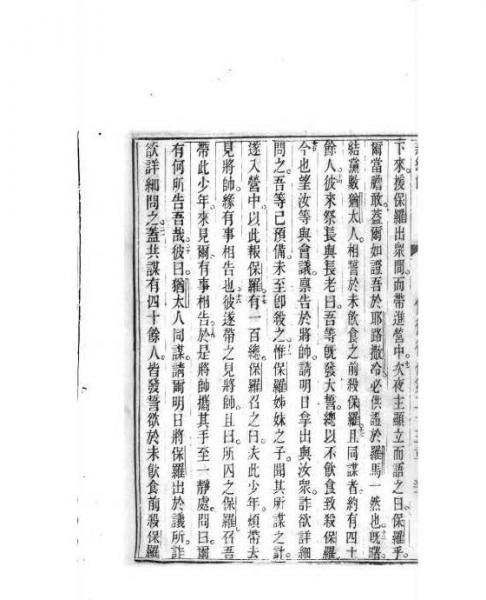 下來援保羅出眾間而帶進營中次夜主顯立而語之曰保羅乎
爾當膽敢蓋爾如證吾於耶路撒冷必供證於羅馬一然也既曙
結黨數猶太人相誓於未飲食之前殺保羅且同謀者約有四十
餘人彼來祭長與長老曰吾等既發大誓總以不飲食致殺保羅
今也望汝等與會議稟告於將帥請明日拿出與汝眾詐欲詳細
問之吾等已預備未至即殺之惟保羅姊妹之子聞其所謀之計
遂入營中以此報保羅有一百總保羅召之曰夫此少年煩帶去
見將帥緣有事相告也彼遂帶之見將帥且曰所囚之保羅召吾
帶此少年來見爾有事相告於是將帥攜其手至一靜處問曰爾
有何所告吾哉彼曰猶太人同謀請爾明日將保羅出於議所詐
欲詳細問之蓋共謀有四十餘人皆發誓欲於未飲食前殺保羅